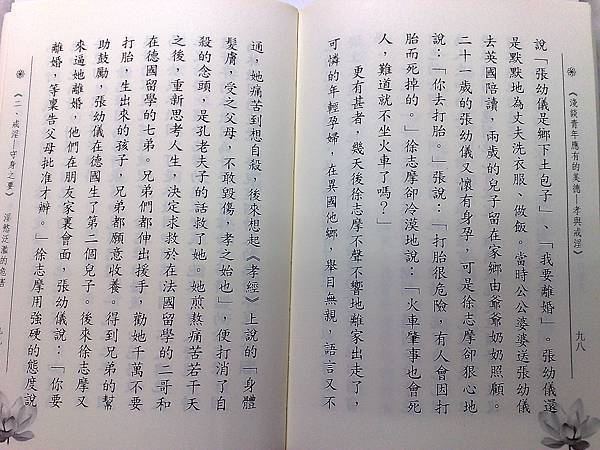 《淺談青年應有的美德—孝與戒淫》
九八
說「張幼儀是鄉下土包子」、「我要離婚」。張幼儀還
是默默地為丈夫洗衣服、做飯。當時公公婆婆送張幼儀
去英國陪讀,兩歲的兒子留在家鄉由爺爺奶奶照顧。
二十一歲的張幼儀又懷有身孕,可是徐志摩卻狠心地
說:「你去打胎。」張說:「打胎很危險,有人會因打
胎而死掉的。」徐志摩卻冷漠地說:「火車肇事也會死
人,難道就不坐火車了嗎?」
更有甚者,幾天後徐志摩不聲不響地離家出走了,
可憐的年輕孕婦,在異國他鄉,舉目無親,語言又不
通,她痛苦到想自殺,後來想起《孝經》上說的「身體
髮膚,受之父母,不敢毀傷,孝之始也」,便打消了自
殺的念頭,是孔老夫子的話救了她。她煎熬痛苦若干天
之後,重新思考人生,決定求救於在法國留學的二哥和
在德國留學的七弟。兄弟們都伸出援手,勸她千萬不要
打胎,生出來的孩子,兄弟都願意收養。得到兄弟的幫
助鼓勵,張幼儀在德國生了第二個兒子。後來徐志摩又
來逼她離婚,他們在朋友家裏會面,張幼儀說:「你要
離婚,等稟告父母批准才辦。」徐志摩用強硬的態度說
《二、戒淫—守身之要》
淫慾泛濫的危害